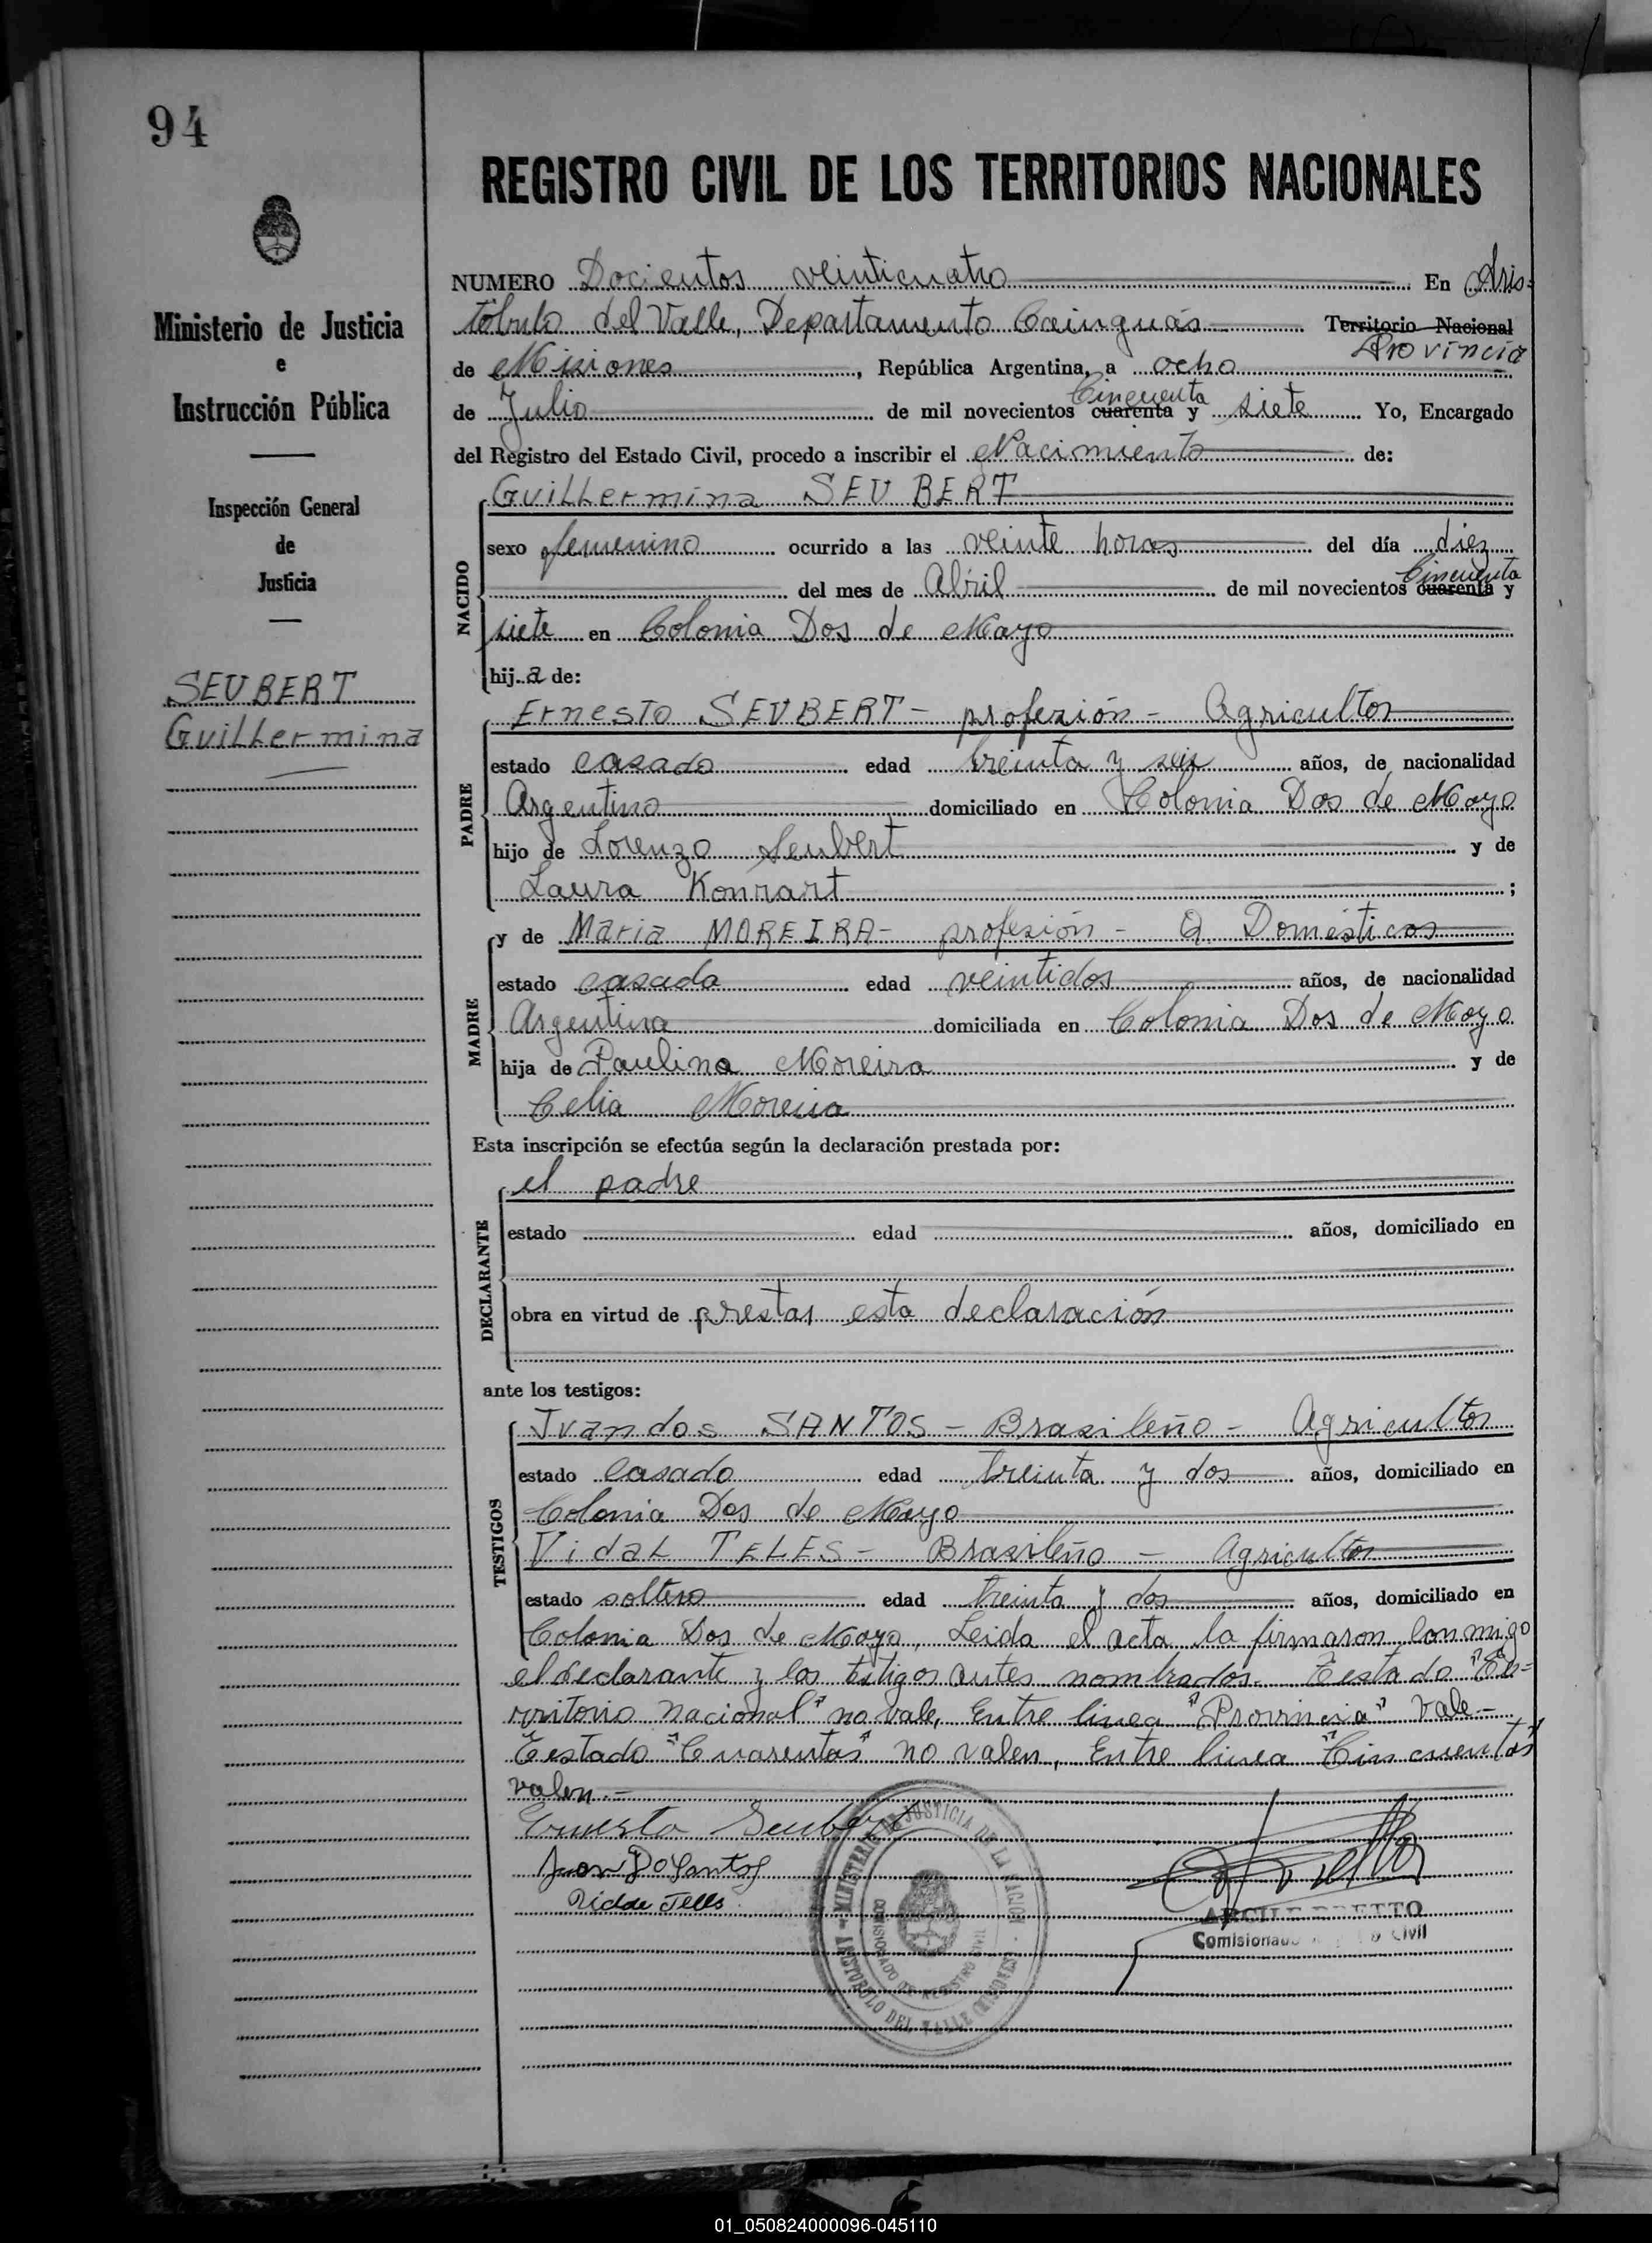 94
REGISTRO CIVIL DE LOS TERRITORIOS NACIONALES
Ministerio de Justicia
e
Instrucción Pública
Inspección General
de
Justicia
SEUBERT
Guillermina
NUMERO Docientos veinticuatro En Aris-
tóbulo del Valle, Departamento Cainguás Territorio Nacional
Provincia
de Misiones, República Argentina, a ocho
Cincuenta
de Julio de mil novecientos cuarenta y siete Yo, Encargado
del Registro del Estado Civil, procedo a inscribir el Nacimiento de:
NACIDO
Guillermina SEUBERT
sexo femenino ocurrido a las veinte horas del día diez
Cincuenta
del mes de Abril de mil novecientos cuarenta y
siete en Colonia Dos de Mayo
hij a de:
PADRE
Ernesto SEUBERT - profesión - Agricultor
estado casado edad treinta y seis años, de nacionalidad
Argentino domiciliado en Colonia Dos de Mayo
hijo de Lorenzo Seubert y de
Laura Konrart ;
MADRE
y de Maria MOREIRA - profesión - Q. Domésticos
estado casada edad veintidos años, de nacionalidad
Argentina domiciliada en Colonia Dos de Mayo
hija de Paulino Moreira y de
Celia Moreira
Esta inscripción se efectúa según la declaración prestada por:
DECLARANTE
el padre
estado edad años, domiciliado en
obra en virtud de prestar esta declaración
ante los testigos:
TESTIGOS
Juan dos SANTOS - Brasileño - Agricultor
estado Casado edad treinta y dos años, domiciliado en
Colonia Dos de Mayo
Vidal TELES - Brasileño - Agricultor
estado soltero edad treinta y dos años, domiciliado en
Colonia Dos de Mayo, Leida el acta la firmaron conmigo
el declarante y los testigos antes nombrados. Testado "Te-
rritorio Nacional" no vale, Entre linea "Provincia" Vale -
Testado "Cuarentas" no valen, Entre linea "Cincuentas"
valen. -
Ernesto Seubert
Juan Do Santos
Vidal Teles
MINISTERIO DE JUSTICIA DE LA NACION
COMISIONADO DE REGISTRO CIVIL
ARISTOBULO DEL VALLE (MISIONES)
Comisionado Civil
01_050824000096-045110